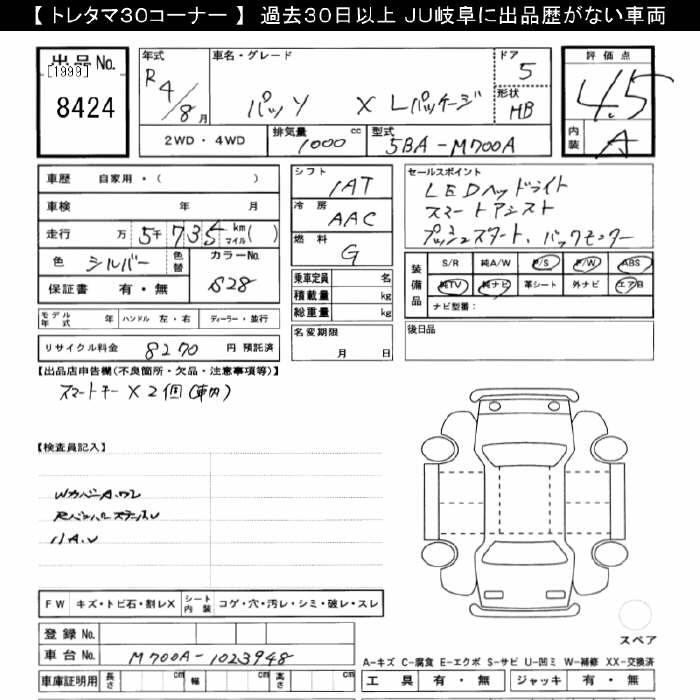 【 トレタマ30コーナー 】 過去30日以上 JU岐阜に出品歴がない車両
出品No.
[1999]
8424
年式 車名・グレード ドア 評価点
R4/8月 パッソ X Lパッケージ 5 4.5
形状 HB
2WD・4WD 排気量 1000 cc 型式 5BA-M700A 内装 A
車歴 自家用・( )
車検 年 月
走行 万 5千735 km マイル( )
色 シルバー 色替 カラーNo. S28
保証書 有・無
モデル年式 年 ハンドル 左・右 ディーラー・並行
リサイクル料金 8270 円 預託済
シフト IAT
冷房 AAC
燃料 G
乗車定員 名
積載量 kg
総重量 kg
名変期限
月 日
セールスポイント
LEDヘッドライト
スマートアシスト
プッシュスタート、バックモニター
装備品 S/R 純A/W P/S P/W ABS
純TV 純ナビ 革シート 外ナビ エアB
ナビ型番:
後日品
【出品店申告欄(不良箇所・欠品・注意事項等)】
スマートキー×2個(車内)
【検査員記入】
WカバーA.ワレ
RバンパーステップU
リA.U
FW キズ・トビ石・割レX シート内装 コゲ・穴・汚レ・シミ・破レ・スレ
登録No.
車台No. M700A-1023948
車庫証明用 長さ cm 幅 cm 高さ cm
スペア
A-キズ C-腐食 E-エクボ S-サビ U-凹ミ W-補修 XX-交換済
工具 有・無 ジャッキ 有・無